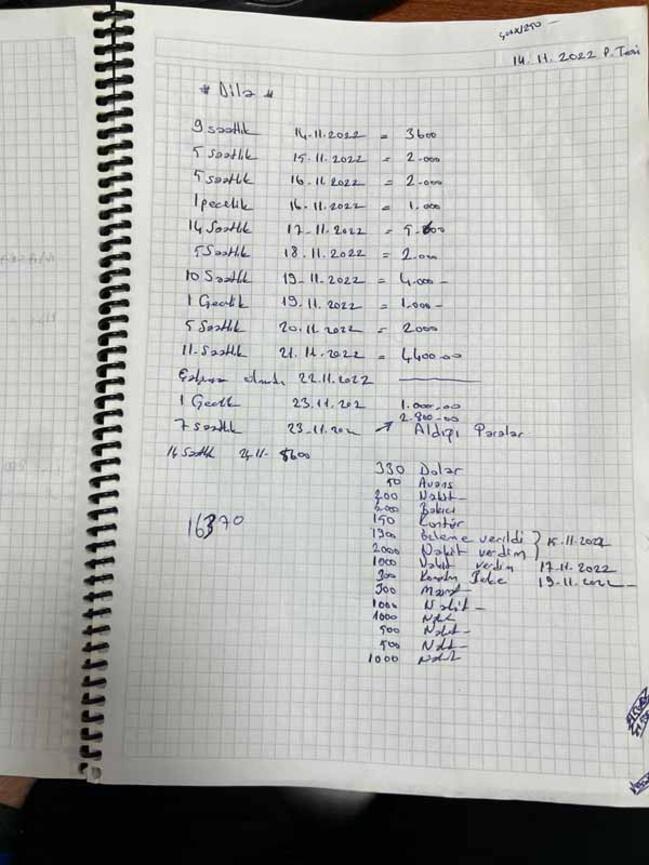 14.11.2022 P.Tesi
* Dila *
9 saatlik 14-11-2022 = 3600
5 saatlik 15-11-2022 = 2.000
5 saatlik 16-11 2022 = 2.000
1 pecelik 16-11-2022 = 1.000
14 Saatlik 17-11-2022 = 5.600
5 Saatlik 18.11.2022 = 2.000
10 Saatlik 19-11-2022 = 4.000-
1 Gecelik 19.11.2022 = 1.000-
5 Saatlik 20.11.2022 = 2000
11-Saatlik 21.11.2022 = 4400.00
22.11.2022
1 Gecelik 23.11.202 1.000.00
7 saatlik 23-11.202 2.800-00
Aldığı Paralar
14 Saatlik 24.11- 5600
330 Dolar
50 Avans
200 Nakit-
200 Bakıcı
150 Kontür
16370
1300 ödeme verildi
15.11.2022
2000 Nakit verdim
1000 Nakit verdim 17-11-2022
300 19-11-2022-
300
1000 Nakit-
1000 Nakit
500 Nakit-
500 Nakit-
1000 Nakit